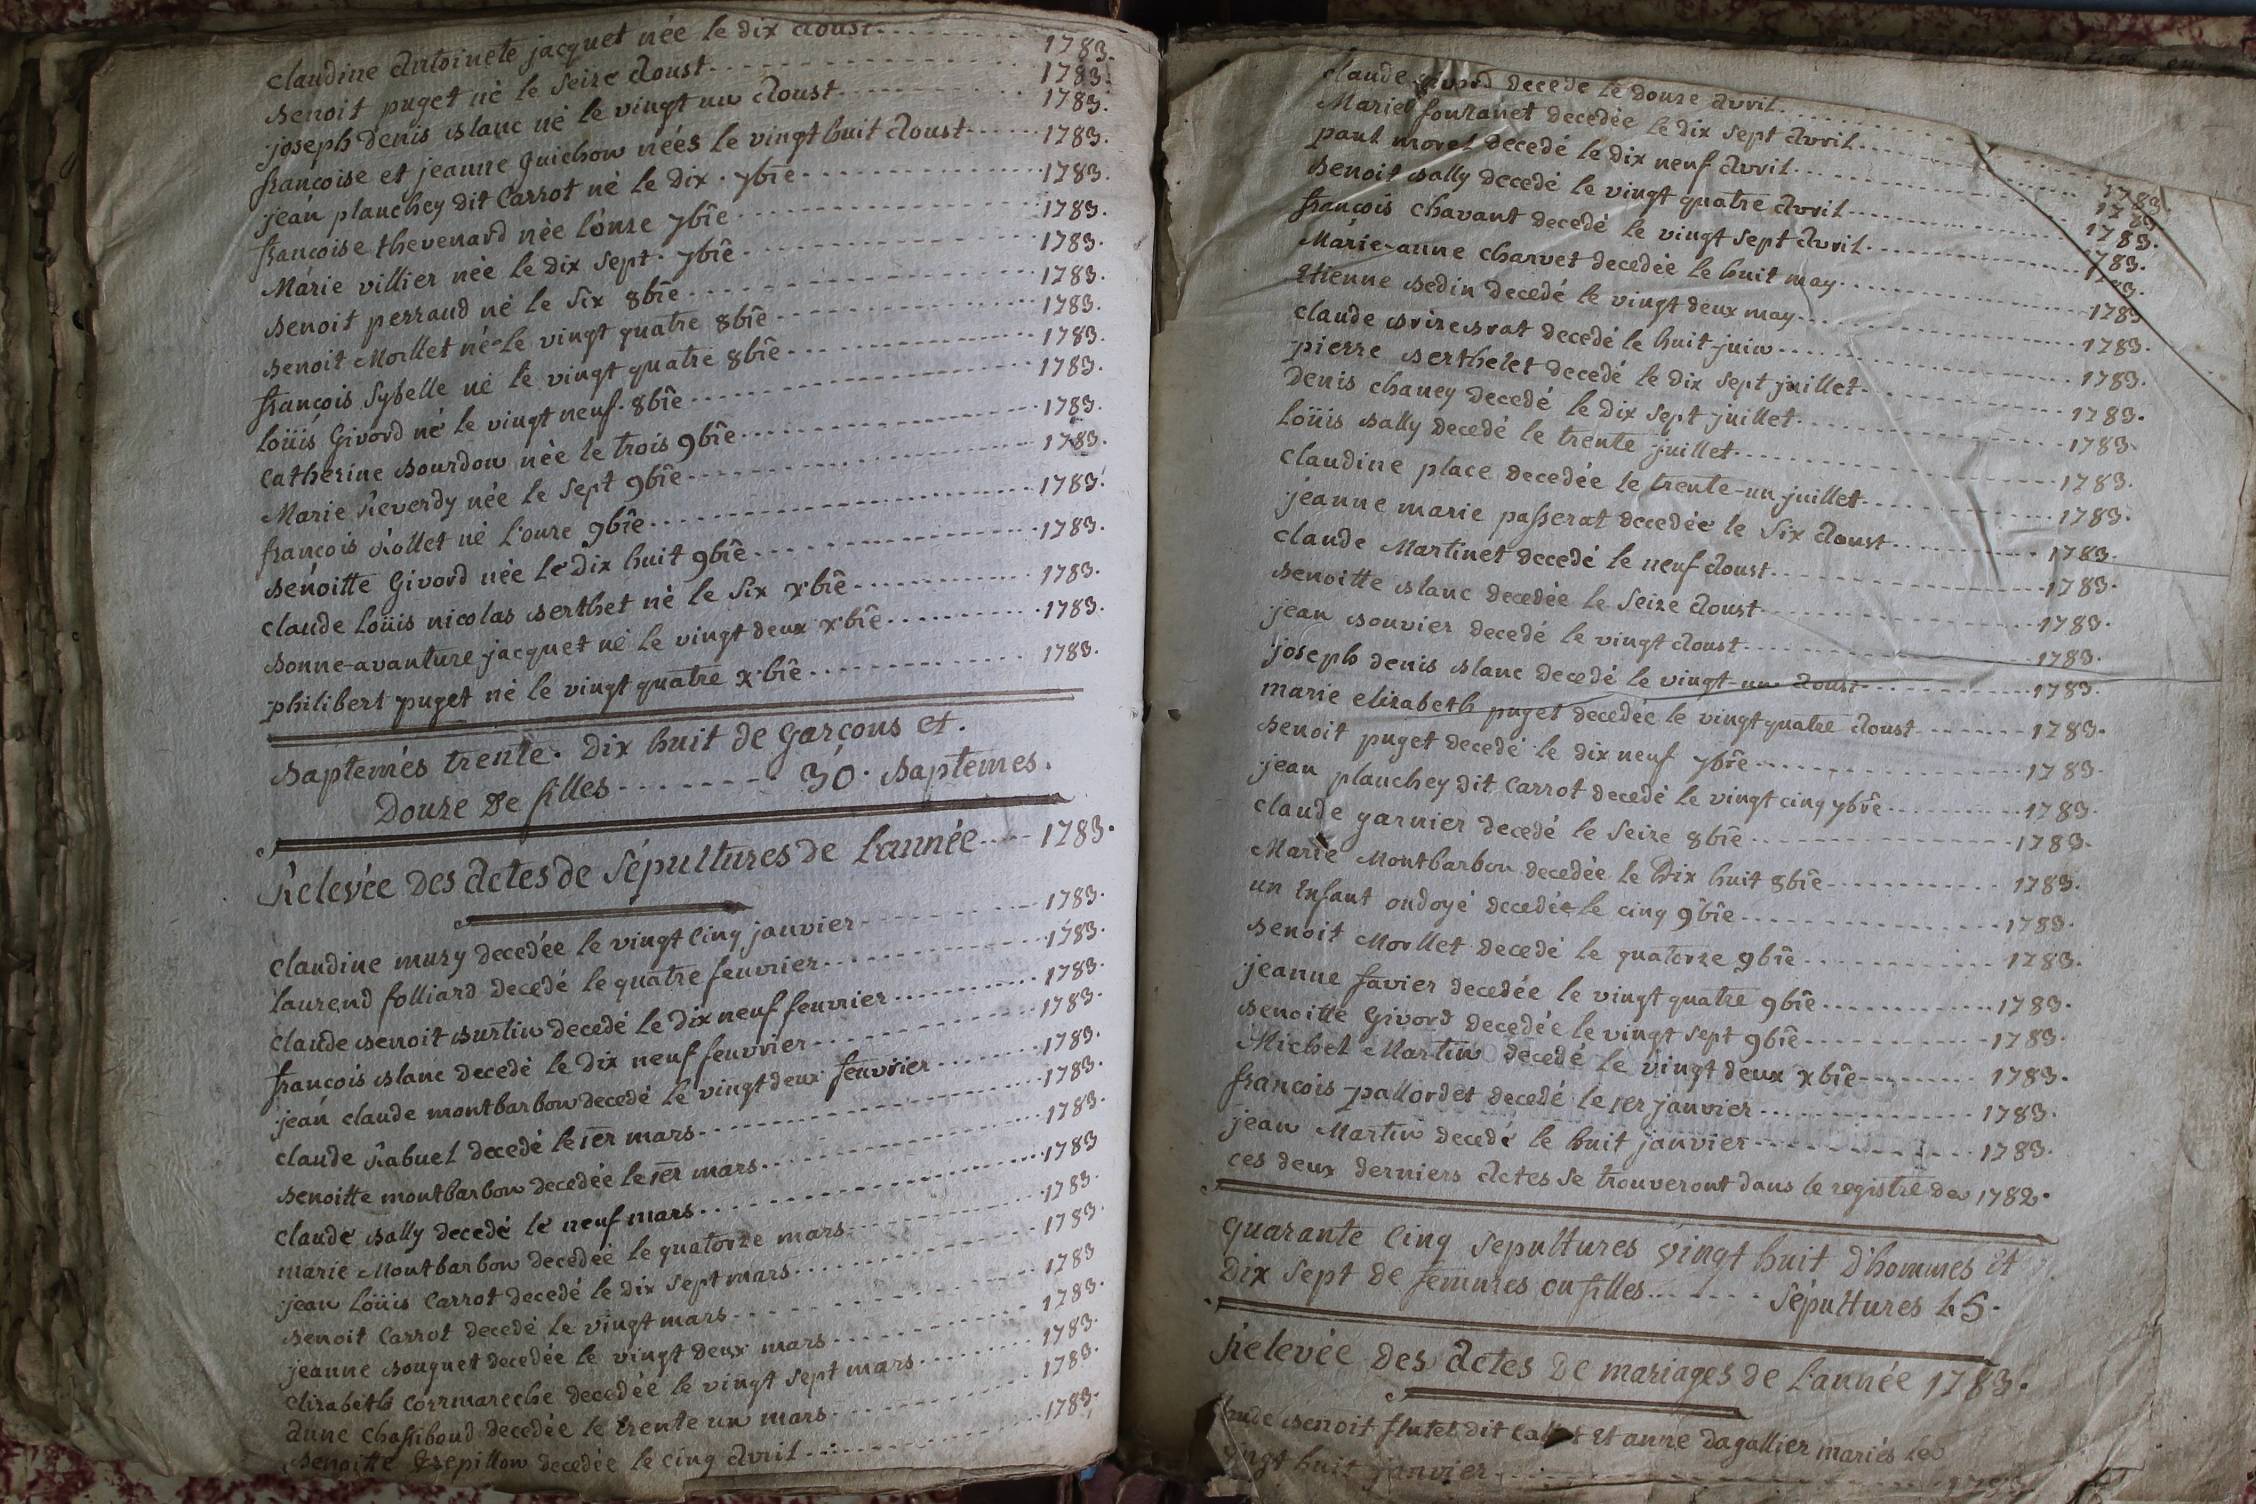 claudine Antoinete jacquet née le dix Aoust 1783.
Benoit puget né le Seize Aoust 1783.
joseph Denis Blanc né le vingt un Aoust 1783.
françoise et jeanne guichon néés le vingt huit Aoust 1783.
jean planchey dit Carrot né le Dix. 7bre 1783.
françoise thevenard née l'onze 7bre 1783.
Marie villier née le Dix Sept. 7bre 1783.
Benoit perraud né le Six 8bre 1783.
Benoit Morllet né le vingt quatre 8bre 1783.
françois Sybelle né le vingt quatre 8bre 1783.
Loüis Givord né le vingt neuf. 8bre 1783.
Catherine Bourdon née le trois 9bre 1783.
Marie Reverdy née le Sept 9bre 1783.
françois Rollet né l'onze 9bre 1783.
Benoitte Givord née le Dix huit 9bre 1783.
claude Loüis nicolas Berthet né le Six xbre 1783.
Bonne-avanture jacquet né le vingt deux xbre 1783.
philibert puget né le vingt quatre xbre 1783.
Baptemes trente. Dix huit de Garçons et.
Douze De filles 30. Baptemes.
Relevée Des Actes de Sépultures de L'année 1783.
claudine mury decedée le vingt Cinq janvier 1783.
laurend folliard decedé le quatre feuvrier 1783.
claude Benoit Burtin decedé le Dix neuf feuvrier 1783.
françois Blanc decedé le Dix neuf feuvrier 1783.
jean claude montbarbon decedé le vingt deux feuvrier 1783.
claude Rabuel decedé le 1er mars 1783.
Benoitte montbarbon decedée le 1er mars 1783.
claude Bally decedé le neuf mars 1783
marie Montbarbon decedée le quatorze mars 1783.
jean Loüis Carrot decedé le dix Sept mars 1783.
Benoit Carrot decedé le vingt mars 1783
jeanne Bouquet decedée le vingt Deux mars 1783.
elizabeth Corrmareche decedée le vingt Sept mars 1783.
Anne Chassiboud decedée le trente un mars 1783.
Benoitte Trepillon decedée le Cinq Avril 1783.
claude givord Decedé le Douze Avril 1783.
Marie fouranet decedée le Dix Sept Avril 1783
paul morel Decedé le Dix neuf Avril 1783.
Benoit Bally Decedé le vingt quatre Avril 1783.
françois Chavant decedé le vingt Sept Avril 1783.
Marie-anne Charvet decedée le huit may 1783
Etienne Bedin decedé le vingt deux may 1783.
claude Brizebrat decedé le huit juin 1783.
pierre Berthelet decedé le Dix Sept juillet 1783.
Denis chaney decedé le Dix Sept juillet 1783.
Loüis Bally decedé le trente juillet 1783.
claudine place decedée le trente-un juillet 1783.
jeanne marie passerat decedée le Six Aoust 1783.
claude Martinet decedé le neuf Aoust 1783.
Benoitte Blanc decedée le Seize Aoust 1783.
jean Bouvier decedé le vingt Aoust 1783.
joseph Denis Blanc decedé le vingt-un Aoust 1783.
marie elizabeth puget decedée le vingt quatre Aoust 1783.
Benoit puget decedé le dix neuf 7bre 1783.
jean planchey dit Carrot decedé le vingt cinq 7bre 1783.
claude garnier decedé le Seize 8bre 1783.
Marie Montbarbon decedée le Dix huit 8bre 1783.
un Enfant ondoyé decedée le cinq 9bre 1783.
Benoit Morllet decedé le quatorze 9bre 1783.
jeanne favier decedée le vingt quatre 9bre 1783.
Benoitte Givord decedée le vingt Sept 9bre 1783.
Michel Martin decedé le vingt deux xbre 1783.
françois pallordet decedé le 1er janvier 1783.
jean Martin decedé le huit janvier 1783.
ces deux derniers Actes se trouveront dans le registre de 1782.
quarante Cinq Sepultures vingt huit D'hommes Et
Dix Sept de femmes ou filles Sépultures 45.
Relevée Des Actes De mariages de L'année 1783.
Benoit flutet dit Et anne Dagallier mariés Le
vingt huit janvier 1783